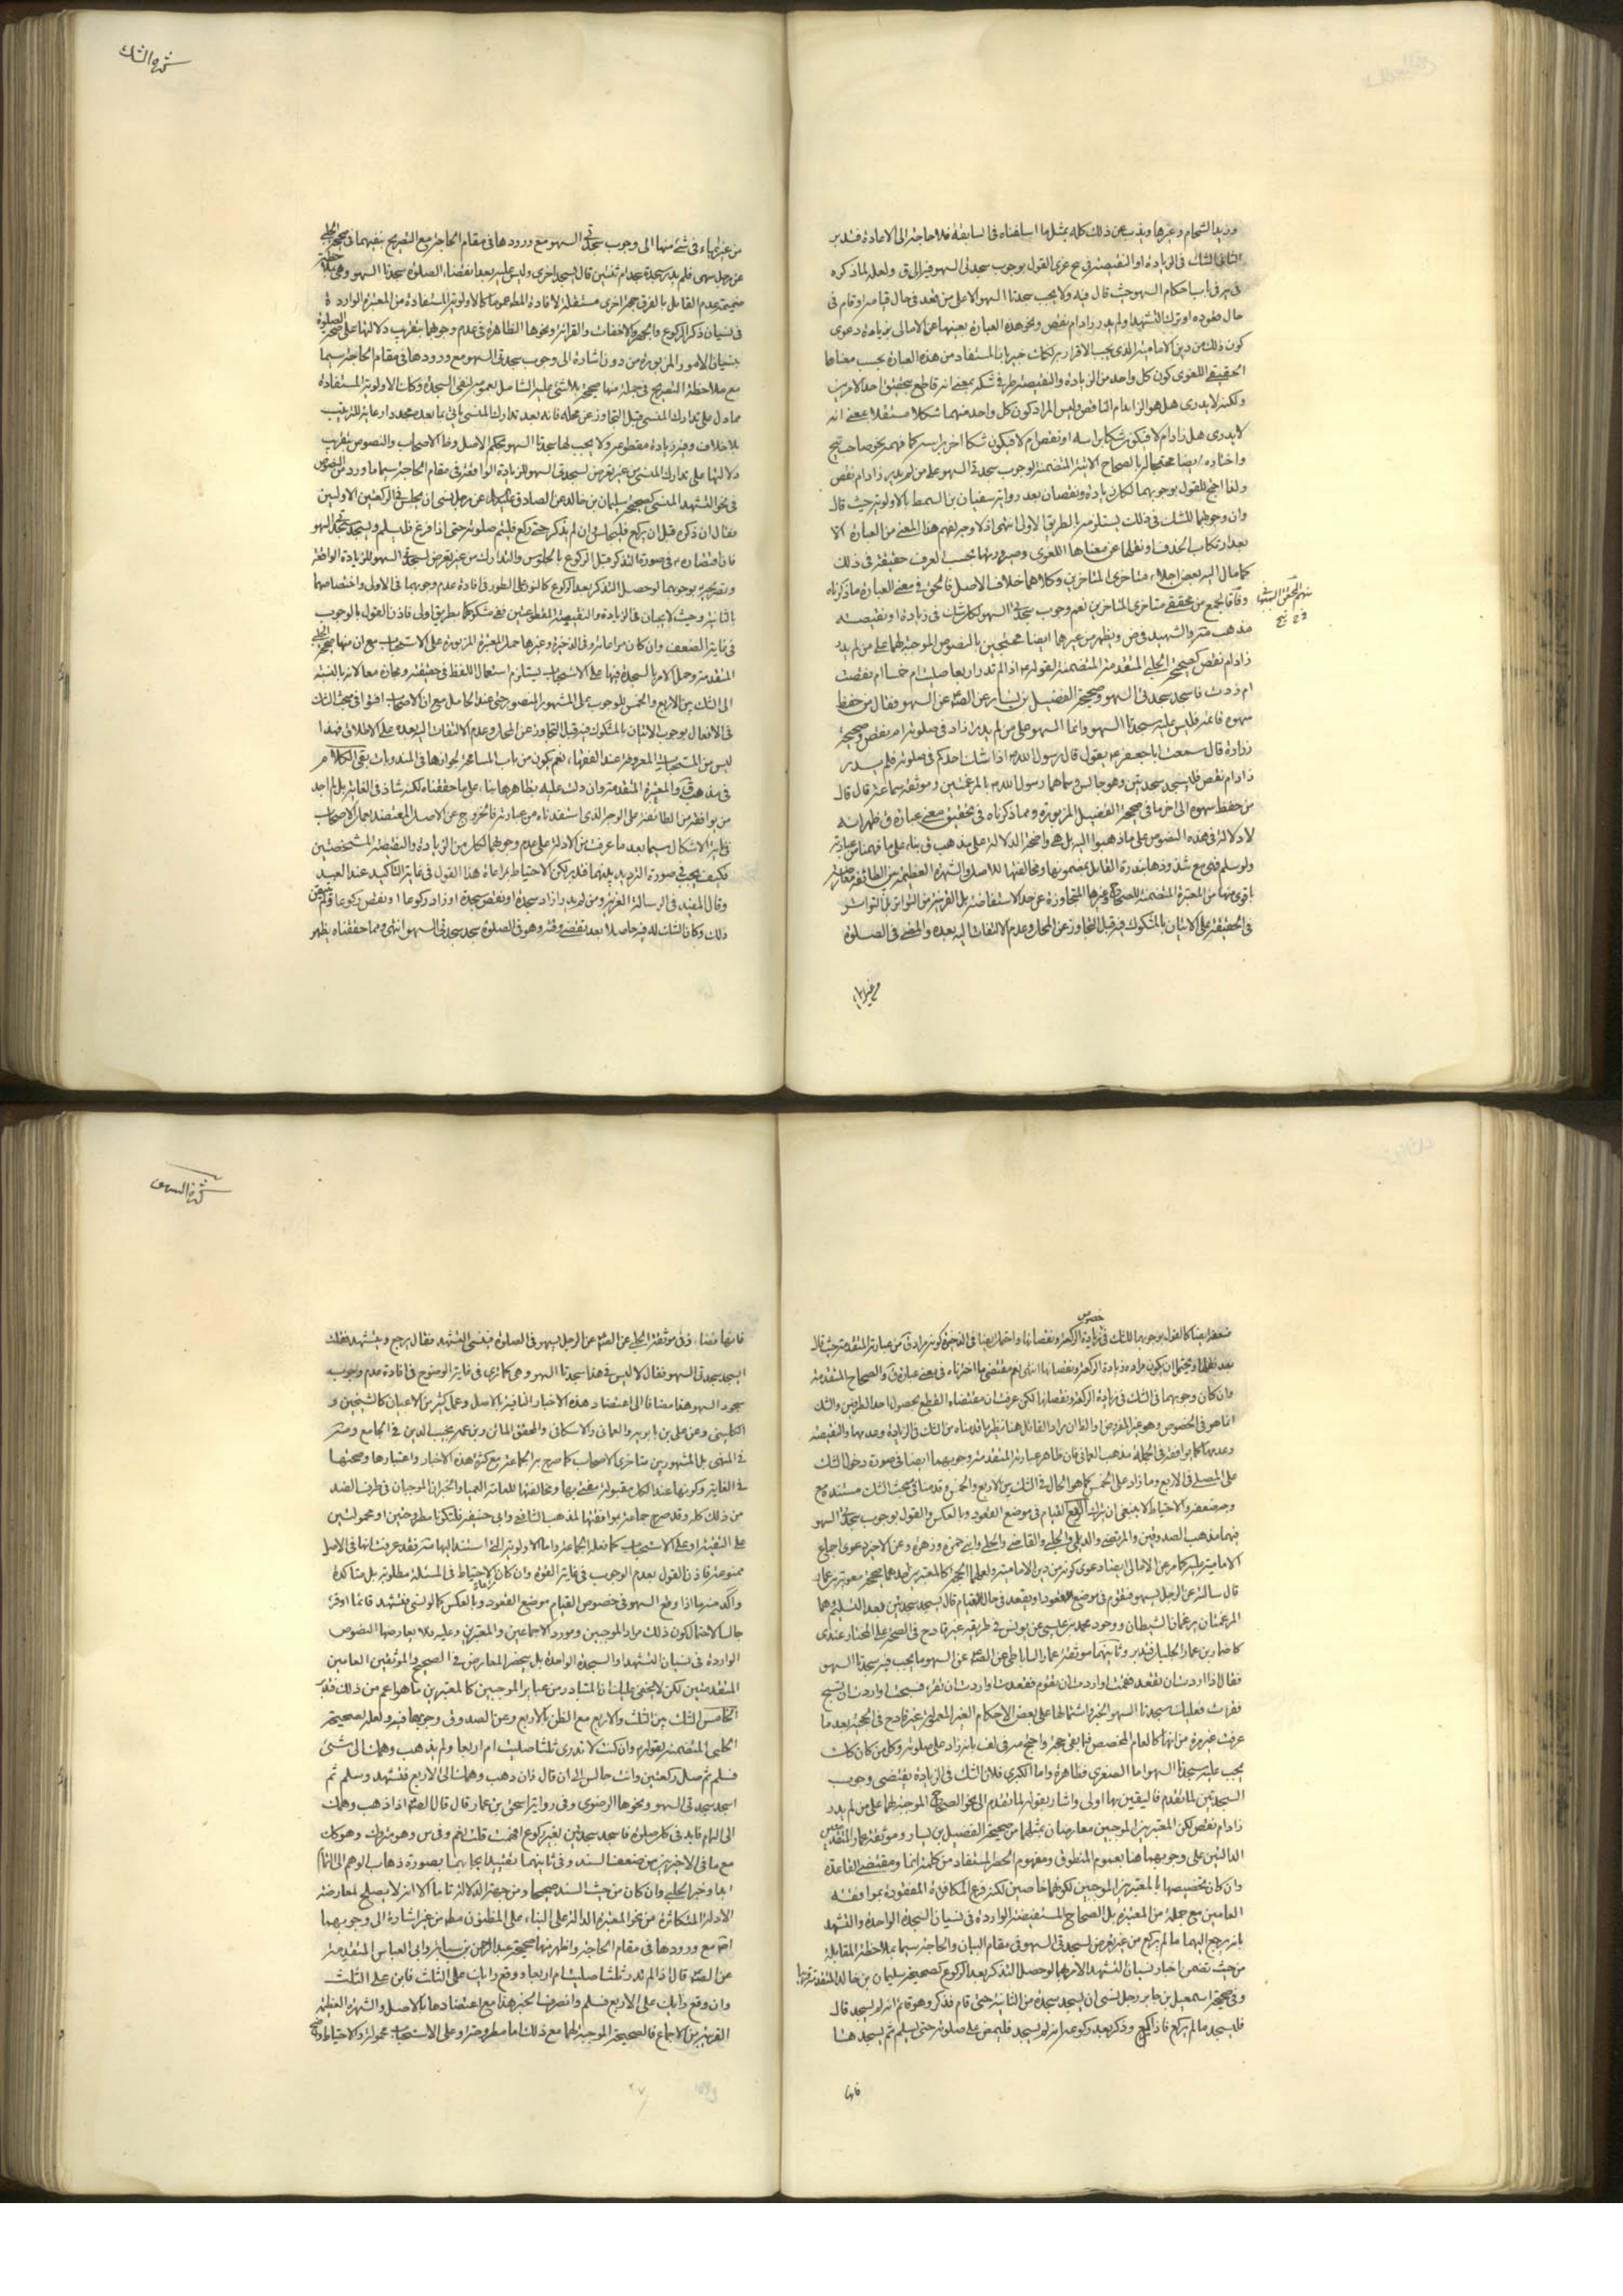 كثرة الشك
وزيد الشحام وغيرها ويذب عن ذلك كله بمثل ما اسلفناه في السابقة فلا حاجة الى الاعادة فتدبر
الثاني الشك في الزيادة او النقيصة القول بوجوب سجدتي السهو فيه الى ولعله لما ذكره
في باب احكام السهو حيث قال فيه ولا يجب سجدتا السهو الا على من قعد في حال قيامه او قام في
حال قعوده او ترك التشهد او لم يدر زاد ام نقص ونحو هذه العبارة بعينها عن الامالي بزيادة دعوى
كون ذلك من دين الامامية الذي يجب الاقرار به لكنك خبير بان المستفاد من هذه العبارة بحسب معناها
الحقيقي اللغوي كون كل واحد من الزيادة والنقيصة طرفي شكه بمعنى انه قاطع بتحقق احد الامرين
ولكنه لا يدرى هل هو الزائد ام الناقص وليس المراد كون كل واحد منهما شكا مستقلا بمعنى انه
لا يدرى هل زاد ام لا فيكون شكا براسه او نقص ام لا فيكون شكا اخر براسه كما فهمه بعض
واختاره ايضا محتجا له بالصحاح الاتية المتضمنة لوجوب سجدتي السهو على من لم يدر زاد ام نقص
ولذا احتج للقول بوجوبهما لكل زيادة ونقصان بعد رواية سفيان بن السمط بالاولوية حيث قال
وان وجوبهما للشك في ذلك يستلزمه بالطريق الاولى انتهى اذ لا وجه لفهم هذا المعنى من العبارة الا
بعد ارتكاب الحذف او نقلها عن معناها اللغوي وصيرورتها بحسب العرف حقيقة في ذلك
كما مال اليه بعض اجلاء متاخري المتاخرين وكلاهما خلاف الاصل فالحق في معنى العبارة ما ذكرناه
وفاقا لجمع من محققي متاخري المتاخرين نعم وجوب سجدتي السهو لكل شك في زيادة او نقيصة
مذهب والشهيد في ض ويظهر من غيرهما ايضا محتجين بالنصوص الموجبة لهما على من لم يدر
زاد ام نقص كصحيحة الحلبي المتقدمة المتضمنة لقوله ع اذا لم تدر اربعا صليت ام خمسا ام نقصت
ام زدت فاسجد سجدتي السهو وصحيحة الفضيل بن يسار عن الص ع عن السهو فقال من حفظ
سهوه فاتمه فليس عليه سجدتا السهو وانما السهو على من لم يدر زاد في صلوته ام نقص وصحيحة
زرارة قال سمعت ابا جعفر ع يقول قال رسول الله ص اذا شك احدكم في صلوته فلم يدر
زاد ام نقص فليسجد سجدتين وهو جالس وسماهما رسول الله ص بالمرغمتين وموثقة سماعة قال قال
من حفظ سهوه الى اخر ما في صحيحة الفضيل المزبورة ومما ذكرناه في تحقيق معنى عبارة ق ظهر انه
لا دلالة في هذه النصوص على ما ذهبوا اليه بل هي واضحة الدلالة على مذهب ق بناء على ما فهمنا من عبارته
ولو سلم فهي مع شذوذها بندرة القائل بمضمونها ومخالفتها للاصل والشهرة العظيمة من الطائفة معارضة
باقوى منها من المعتبرة المتضمنة للصحاح وغيرها المتجاوزة عن حد الاستفاضة بل القريبة من التواتر بل التواتر
في الحقيقة على الاتيان بالمشكوك فيه قبل التجاوز عن المحل وعدم الالتفات اليه بعده والمضي في الصلوة
من غير ايماء
من غير ايماء في شئ منها الى وجوب سجدتي السهو مع ورودها في مقام الحاجة مع التصريح بنفيهما في صحيحة الحلبي
عن رجل سهى فلم يدر سجدة سجد ام ثنتين قال يسجد اخرى وليس عليه بعد انقضاء الصلوة سجدتا السهو وهي بملاحظة
ضميمة عدم القائل بالفرق حجة اخرى مستقلة لافادة المط عموما كالاولوية المستفادة من المعتبرة الواردة
في نسيان ذكر الركوع والجهر والاخفات والقرائة ونحوها الظاهرة في عدم وجوبهما بتقريب دلالتها على صحة الصلوة
بنسيان الامور المزبورة من دون اشارة الى وجوب سجدتي السهو مع ورودها في مقام الحاجة سيما
مع ملاحظة التصريح في جملة منها صحيحة بلا شئ عليه الشامل بعمومه لنفي السجدة وكذا الاولوية المستفادة
مما دل على تدارك المنسي قبل التجاوز عن محله فانه بعد تدارك المنسي ياتي بما بعده مجددا رعاية للترتيب
بلا خلاف وفيه زيادة مقطوعة ولا يجب لها سجدتا السهو بحكم الاصل وظ الاصحاب والنصوص بتقريب
دلالتها على تدارك المنسي من غير تعرض لسجدتي السهو للزيادة الواقعة في مقام الحاجة سيما ما ورد من النصوص
في نحو التشهد المنسي كصحيحة سليمان بن خالد عن الصادق ع عن رجل نسي ان يجلس في الركعتين الاوليين
فقال ان ذكره قبل ان يركع فليجلس وان لم يذكر حتى ركع فليتم صلوته حتى اذا فرغ فليسلم ويسجد سجدتي السهو
فان اقتصاره ع في صورة التذكر قبل الركوع بالجلوس والتدارك من غير تعرض لسجدتي السهو للزيادة الواقعة
وتصريحه بوجوبهما لو حصل التذكر بعد الركوع كالنور على الطور في افادة عدم وجوبهما في الاولى واختصاصهما
بالثانية وحيث لا يجبان في الزيادة والنقيصة المقطوعتين ففي مشكوكهما بطريق اولى فاذن القول بالوجوب
في غاية الضعف وان كان مراعاته وفي الذخيرة وغيرها حمل المعتبرة المزبورة على الاستحباب مع ان منها صحيحة الحلبي
المتقدمة وحمل الامر بالسجدة فيها على الاستحباب يستلزم استعمال اللفظ في حقيقته ومجازه معا لانه بالنسبة
الى الشك بين الاربع والخمس للوجوب على المشهور المنصور حتى عند الحامل مع ان الاصحاب افتوا في مبحث الشك
في الافعال بوجوب الاتيان بالمشكوك فيه قبل التجاوز عن المحل وعدم الالتفات اليه بعده على الاطلاق فهذا
ليس من المستحبات المعروفة عند الفقهاء نعم يكون من باب المسامحة لجوازها في المندوبات بقي الكلام
في مذهب ق والمعتبرة المتقدمة وان دلت عليه بظاهرها بناء على ما حققناه لكنه شاذ في الغاية بل لم اجد
من يوافقه من الطائفة على الوجه الذي استفدناه من عبارته فالخروج عن الاصل المعتضد بعمل الاصحاب
في غاية الاشكال سيما بعد ما عرفت من الادلة على عدم وجوبهما لكل من الزيادة والنقيصة المشخصتين
فكيف يجب في صورة الترديد بينهما فتدبر لكن الاحتياط بمراعاة هذا القول في غاية التاكيد عند العبيد
وقال المفيد في الرسالة الغرية ومن لم يدر ازاد سجدة او نقص سجدة او زاد ركوعا او نقص ركوعا
ذلك وكان الشك له فيه حاصلا بعد تقضي وقته وهو في الصلوة سجد سجدتي السهو انتهى ومما حققناه يظهر
كثرة السهو
ضعف ايضا كالقول بوجوبهما للشك في خصوص زيادة الركعة ونقصانها واحتمل ايضا في الذخيرة كونه مراد ق من عبارته المتقدمة حيث قال
بعد نقلها ويحتمل ان يكون مراده زيادة الركعة ونقصانها انتهى نعم مقتضى ما اخترناه في معنى عبارة ق والصحاح المتقدمة
وان كان وجوبهما في الشك في زيادة الركعة ونقصانها لكن عرفت ان مقتضاه القطع بحصول احد الطرفين والشك
انما هو في الخصوص وهو غير المفروض والظ ان مراد القائل هنا نظير ما قدمناه من الشك في الزيادة وعدمها والنقيصة
وعدمها كما يوافقه في الجملة مذهب العماني فان ظاهر عبارته المتقدمة وجوبهما ايضا في صورة دخول الشك
على المصلي في الاربع وما زاد على الخمس كما هو الحال في الشك بين الاربع والخمس وقدمنا في مبحث الشك مستنده مع
وجه ضعفه والاحتياط لا ينبغي ان يترك الرابع القيام في موضع القعود وبالعكس والقول بوجوب سجدتي السهو
فيهما مذهب الصدوقين والمرتضى والديلمي والحلبي والقاضي والحلي وابني حمزة وزهرة وعن الاخير دعوى اجماع
الامامية عليه كما مر عن الامالي ايضا دعوى كونه من دين الامامية ولعلها الحجة كالمعتبرين احدهما صحيحة معوية بن عمار
قال سالته عن الرجل يسهو فيقوم في موضع القعود او يقعد في حال القيام قال يسجد سجدتين بعد التسليم وهما
المرغمتان يرغمان الشيطان ووجود محمد بن عيسى عن يونس في طريقه غير قادح في الصحة على المختار عندي
كاضمار بن عمار الجليل فتدبر وثانيهما موثقة عمار الساباطي عن الص ع عن السهو ما يجب فيه سجدتا السهو
فقال اذا اردت ان تقعد فقمت او اردت ان تقوم فقعدت او اردت ان تقرء فسبحت او اردت ان تسبح
فقرات فعليك سجدتا السهو الخبر واشتمالها على بعض الاحكام الغير المعمول به غير قادح في الحجية بعد ما
عرفت غير مرة من انها كالعام المخصص فيما بقي حجة واحتج له في لف بانه زاد على صلوته وكل من كان كك
يجب عليه سجدتا السهو اما الصغرى فظاهرة واما الكبرى فلان الشك في الزيادة يقتضي وجوب
السجدتين لما تقدم فاليقين بها اولى واشار بقوله لما تقدم الى نحو الصحاح الموجبة لهما على من لم يدر
زاد ام نقص لكن المعتبرين الموجبين معارضان بمثلهما من صحيحة الفضيل بن يسار وموثقة عمار المتقدمتين
الدالتين على وجوبهما هنا بعموم المنطوق ومفهوم الحصر المستفاد من كلمة انما ومقتضى القاعدة
وان كان تخصيصها بالمعتبرين الموجبين لكونهما خاصين لكنه فرع المكافاة المفقودة بموافقة
العامين مع جملة من المعتبرة بل الصحاح المستفيضة الواردة في نسيان السجدة الواحدة والتشهد
بانه يرجع اليهما ما لم يركع من غير تعرض لسجدتي السهو في مقام البيان والحاجة سيما بملاحظة المقابلة
من حيث تضمن اخبار نسيان التشهد الامر بهما لو حصل التذكر بعد الركوع كصحيحة سليمان بن خالد المتقدمة قريبا
وفي صحيحة اسمعيل بن جابر رجل نسي ان يسجد سجدة من الثانية حتى قام فذكر وهو قائم انه لم يسجد قال
فليسجد ما لم يركع فاذا ركع وذكر بعد ركوعه انه لم يسجد فليمض على صلوته حتى يسلم ثم يسجدها
فانها
فانها قضاء وفي موثقة الحلبي عن الص ع عن الرجل يسهو في الصلوة فينسى التشهد فقال يرجع ويتشهد فقلت
ايسجد سجدتي السهو فقال لا ليس في هذا سجدتا السهو وهي كما ترى في غاية الوضوح في افادة عدم وجوب
سجود السهو هنا مضافا الى اعتضاد هذه الاخبار النافية بالاصل وعمل كثير من الاعيان كالشيخين و
الكليني وعن علي بن بابويه والعماني والاسكافي والمحقق الماتن وبن عمه نجيب الدين في الجامع و
في المنتهى بل المشهور بين متاخري الاصحاب كما صرح به الجماعة مع كثرة هذه الاخبار واعتبارها وصحتها
في الغاية وكونها عند الكل مقبولة مفتى بها ومخالفتها للعامة العمياء والخبران الموجبان في طرف الضد
من ذلك كله وقد صرح جماعة بموافقتها لمذهب الشافعي وابي حنيفة فلتكونا مطروحتين او محمولتين
على التقية او على الاستحباب كما فعله الجماعة واما الاولوية التي استند اليها فقد عرفت انها في الاصل
ممنوعة فاذن القول بعدم الوجوب في غاية القوة وان كان الاحتياط في المسئلة مطلوبة بل متاكدة
واكد منها ما اذا وقع السهو في خصوص القيام موضع القعود وبالعكس كما لو نسي فتشهد قائما او قرء
جالسا لاحتمال كون ذلك مراد الموجبين ومورد الاجماعين والمعتبرين وعليه فلا يعارضها النصوص
الواردة في نسيان التشهد او السجدة الواحدة بل ينحصر المعارض في الصحيح والموثقين العامين
المتقدمتين لكن لا يخفى عليك ان المتبادر من عباير الموجبين كالمعتبرين ما هو اعم من ذلك فتدبر
الخامس الشك بين الثلث والاربع مع الظن بالاربع وعن الصدوق وجوبهما فيه ولعله لصحيحة
الحلبي المتضمنة لقوله ع وان كنت لا تدري ثلثا صليت ام اربعا ولم يذهب وهمك الى شئ
فسلم ثم صل ركعتين وانت جالس الى ان قال فان ذهب وهمك الى الاربع فتشهد وسلم ثم
اسجد سجدتي السهو ونحوها الرضوي وفي رواية اسحق بن عمار قال قال الص ع اذا ذهب وهمك
الى التمام فابدء في كل صلوة فاسجد سجدتين بغير ركوع افهمت قلت نعم وفي س وهو متروك وهو كك
مع ما في الاخيرين من ضعف السند وفي ثانيهما تقييد ايجابهما بصورة ذهاب الوهم الى التمام
ابدا وخبر الحلبي وان كان من حيث السند صحيحا ومن جهة الدلالة تاما الا انه لا يصلح لمعارضة
الادلة المتكاثرة من نحو المعتبرة الدالة على البناء على المظنون مط من غير اشارة الى وجوبهما
اصلا مع ورودها في مقام الحاجة واظهر منها صحيحة عبد الرحمن بن سيابة وابي العباس المتقدمة
عن الص ع قال اذا لم تدر ثلثا صليت ام اربعا ووقع رايك على الثلث فابن على الثلث
وان وقع رايك على الاربع فسلم وانصرف الخبر هذا مع اعتضادها بالاصل والشهرة العظيمة
القريبة من الاجماع فالصحيحة الموجبة لهما مع ذلك اما مطروحة او على الاستحباب محمولة والاحتياط واضح